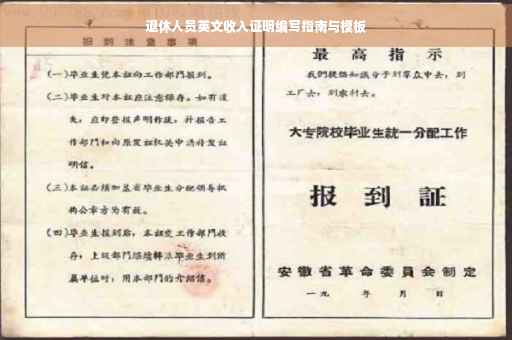 退休人员英文收入证明编写指南与模板
报到注意事项
(一)毕业生凭本证向工作部门报到。
(二)毕业生对本证应注意保存。如有遗
失,应即登报声明作废,并报告工
作部门和向原发证机关申请补发证
明信。
(三)本证必须加盖省毕业生分配领导机
构公章方为有效。
(四)毕业生报到后,本证交工作部门收
存;上级部门
毕业生到所
属单位时,用本部门的介绍信。
最高指示
我们提倡知识分子到群众中去,到
工厂去,到农村去。
大专院校毕业生統一分配工作
报到証
安徽省革命委員会制定
一九 年 月 日